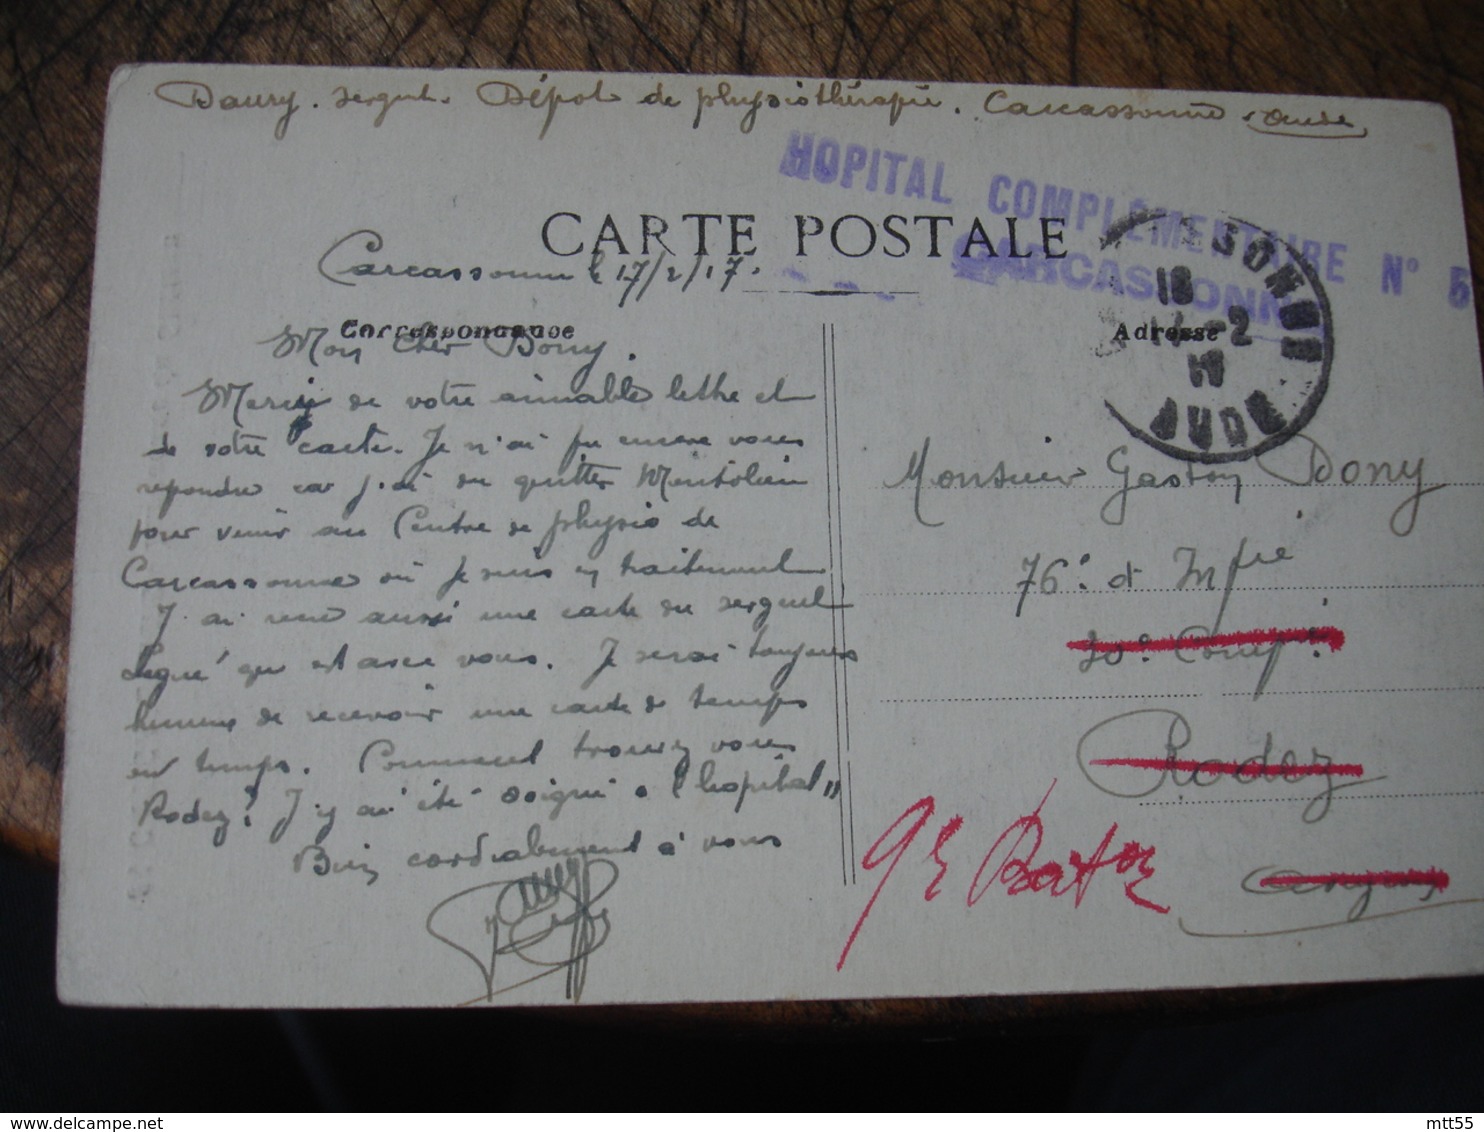 Daury. sergent. Dépôt de physiothérapie. Carcassonne. Aude
HOPITAL COMPLÉMENTAIRE N° 5
CARCASSONNE
CARTE POSTALE
Carcassonne le 17/2/17.
Correspondance
Adresse
SSONNE
18
-2
17
AUDE
Mon Cher Dony.
Merci de votre aimable lettre et
de votre carte. Je n'ai pu encore vous
répondre car j'ai du quitter
pour venir au Centre de physio de
Carcassonne où je suis en traitement
J'ai reçu aussi une carte du sergent
qui est avec vous. Je serai toujours
heureux de recevoir une carte de temps
en temps. Comment trouvez vous
Rodez? J'y ai été soigné à "l'hopital"
Bien cordialement à vous
Daury
Monsieur Gaston Dony
76e. d'Infrie
30e Comp.
Rodez
9e Baton